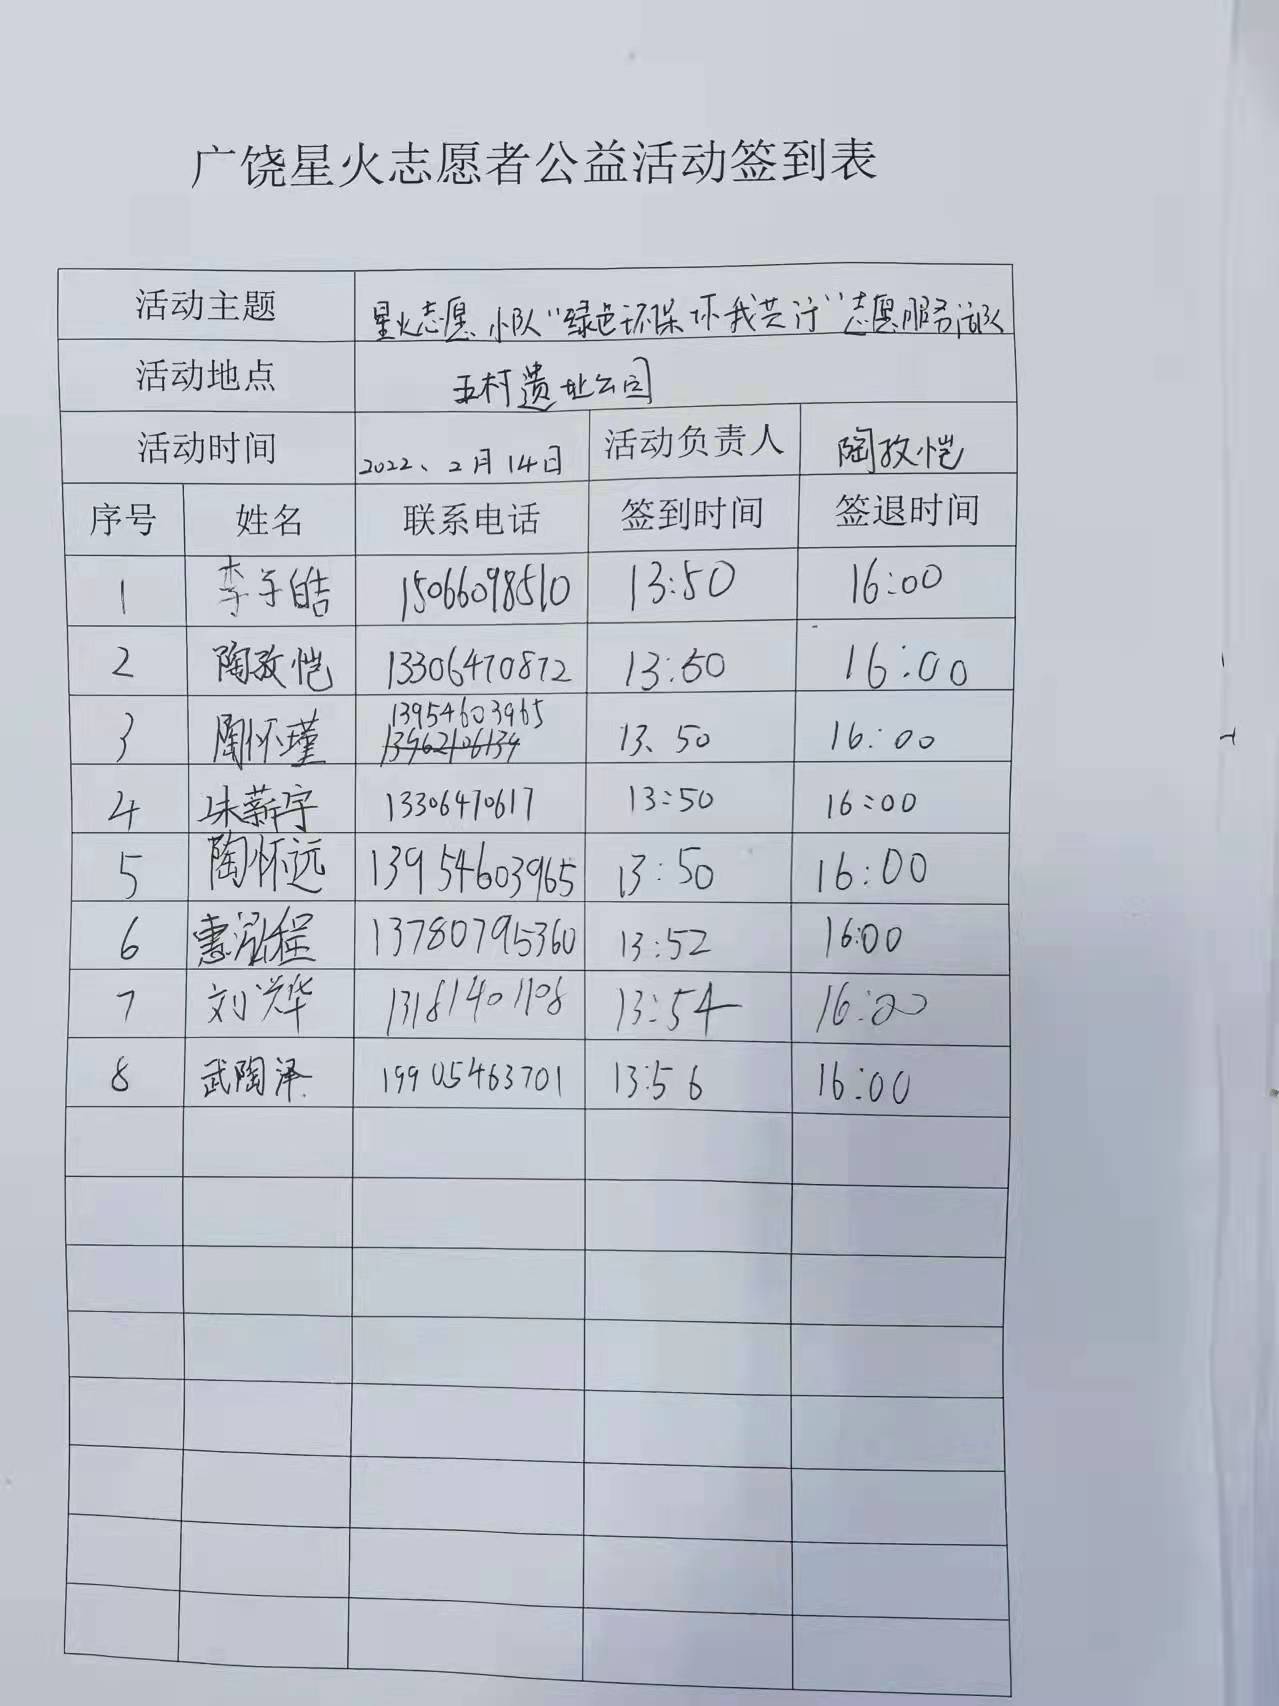 广饶星火志愿者公益活动签到表
活动主题 星火志愿小队“绿色环保你我共行”志愿服务
活动地点 五村遗址公园
活动时间 2022、2月14日 活动负责人 陶孜恺
序号 姓名 联系电话 签到时间 签退时间
1 李子皓 15066098510 13:50 16:00
2 陶孜恺 13306470872 13:50 16:00
3 陶怀瑾 13954603965 13、50 16:00
4 朱薪宇 13306470617 13:50 16:00
5 陶怀远 13954603965 13:50 16:00
6 惠泓程 13780795360 13:52 16:00
7 刘 13181401108 13:54 16:00
8 武陶泽 19905463701 13:56 16:00